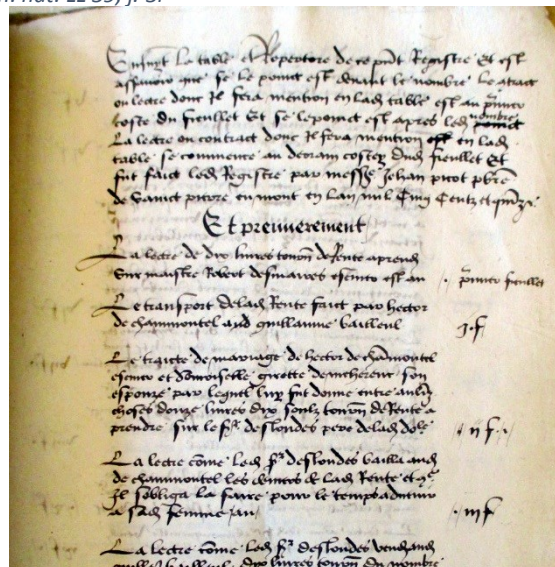 Ensuyt la table et Repertore de ce pnt Registre Et est
assavoir que se le point est devant le nombre le atract
ou lectre dont Il fera mention en lad table est au
coste du fueillet Et se le point est apres led nombre
La lectre ou contract dont Il fera mention est en lad
table se commence au derrain costey dud fueillet Et
fut faict led Registre par messe Jehan picot pbre
de Sainct en lan mil Cinq Centz et
Et premierement
La lectre de dix livres tourn de Rente aprend
Sur maistre Robert escuier est au fueillet
Le transport delad Rente faict par hector
de chaumontel aud guillaume bailleul
j. f
Le traicte de mariage de hector de chaumontel
escuier et damoiselle girette son
espouze par lequel luy fut donne entre
choses douze livres dix soulz tourn de Rente a
prendre sur le sr deslondes pere delad dolle
. ii f.
La lectre come led sr deslondes bailla aud
de chaumontel les de lad Rente et
Il sobliga la faire pour le temps
a sad femme
. iii f
La lectre come led sr deslondes vend aud
guille bailleul dix livres tourn du nombre